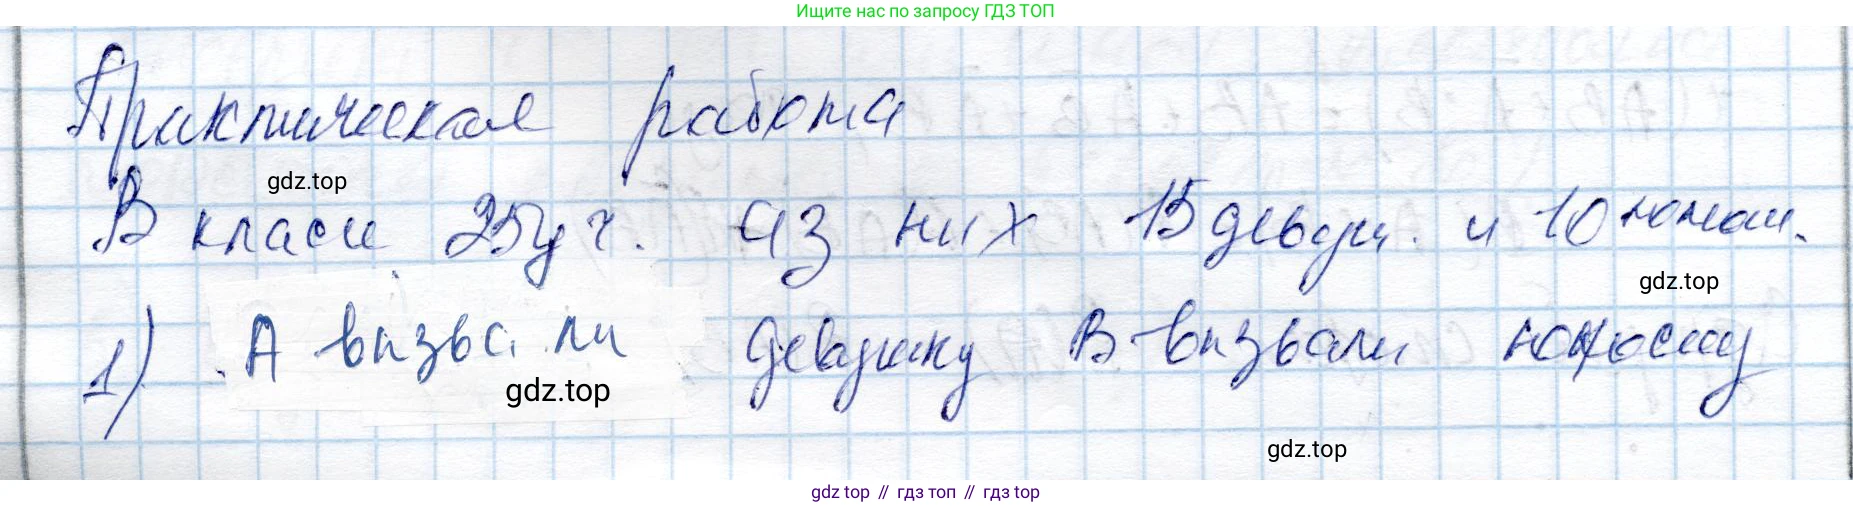 Ищите нас по запросу ГДЗ ТОП
Практическая работа
gdz.top
В класе 25 уч. из них 15 девуш. и 10 юнош.
gdz.top
1) А вызвали девушку В-вызвали юношу
gdz.top
gdz.top
gdz top // гдз топ // гдз top